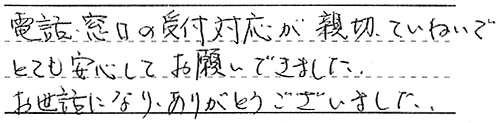 電話、窓口の受付対応が親切、ていねいで
とても安心してお願いできました。
お世話になり、ありがとうございました。